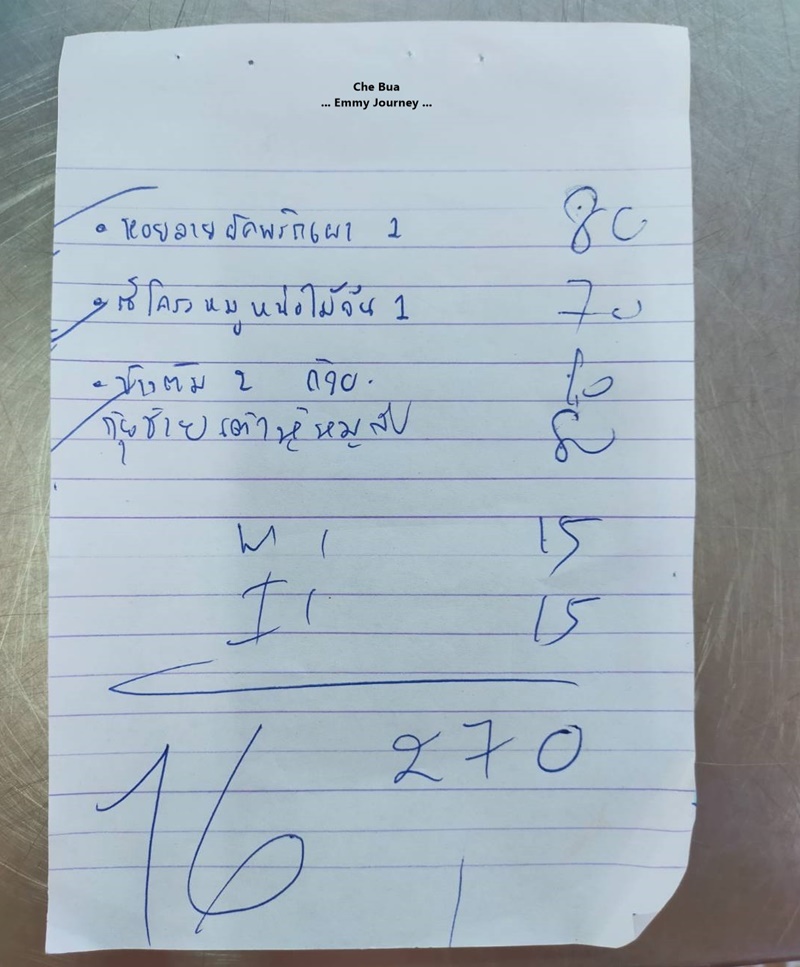 Che Bua
... Emmy Journey ...
• หอยลายผัดพริกเผา 1 80
• ซี่โครงหมูหน่อไม้จีน 1 70
• ข้าวต้ม 2 ถ้วย. 10
กุ๋ยช่ายเต้าหู้หมูสับ 80
W 1 15
I 1 15
270
16